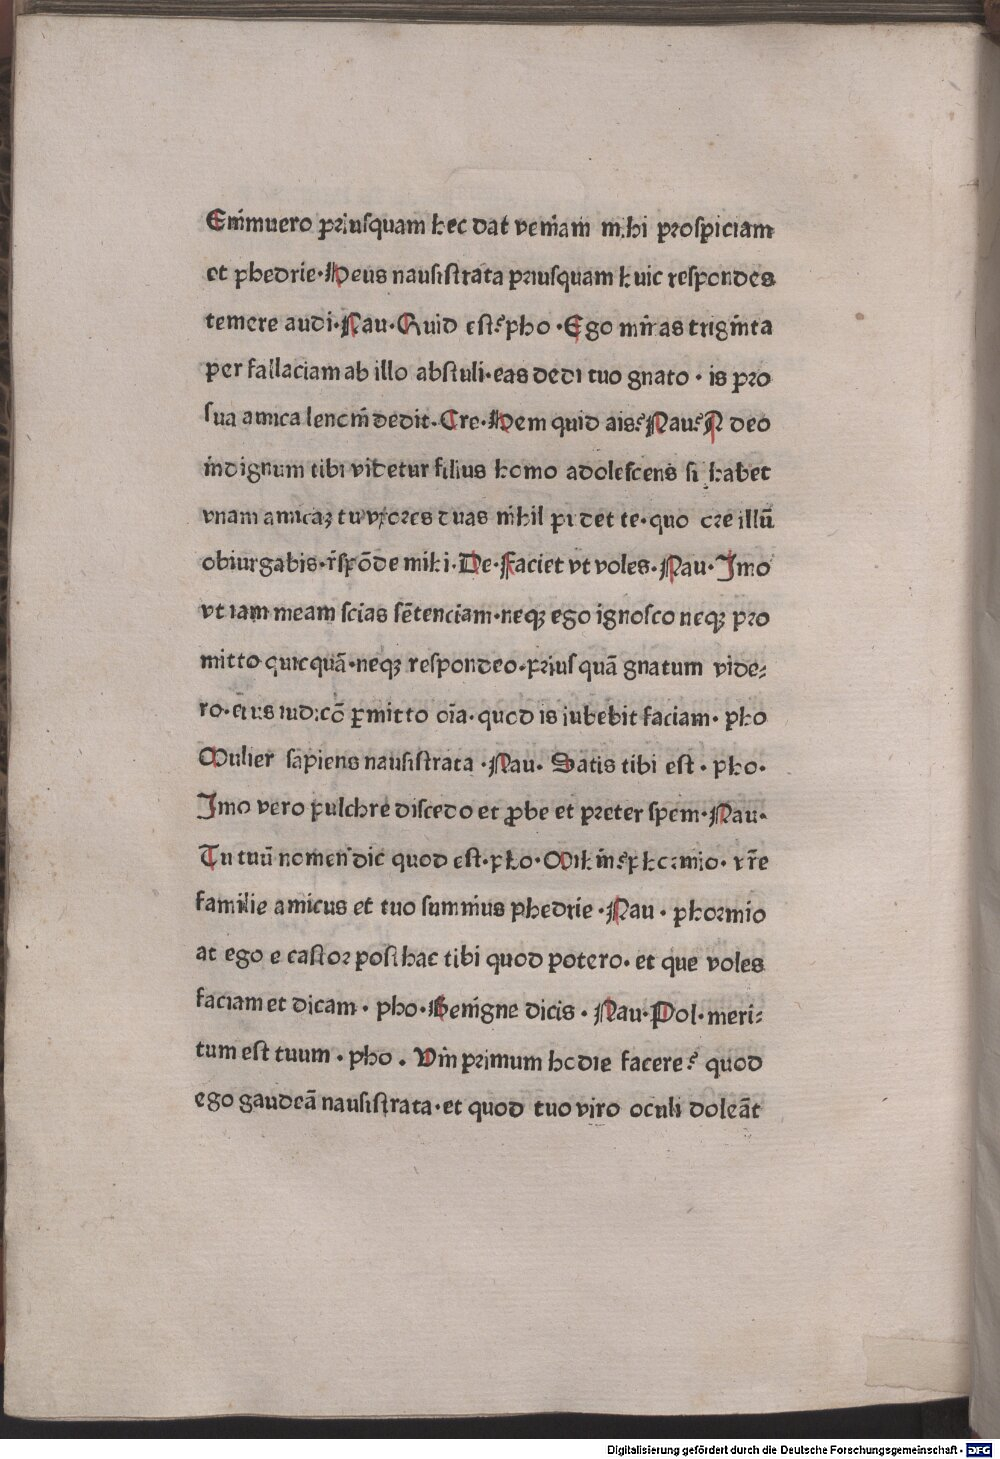 Enīmuero priusquam hec dat veniam mihi prospiciam
et phedrie·Heus nausistrata priusquam huic respondes
temere audi·Nau·Quid est?pho·Ego minas triginta
per fallaciam ab illo abstuli·eas dedi tuo gnato·is pro
sua amica lenoni dedit·Cre·Hem quid ais?Nau?A deo
indignum tibi videtur filius homo adolescens si habet
vnam amicaꝫ tu vxores duas nihil pudet te·quo ore illū
obiurgabis·rn̄spōde mihi·De·Faciet vt voles·Nau·Imo
vt iam meam scias sētenciam·neqꝫ ego ignosco neqꝫ pro
mitto quicquā·neqꝫ respondeo·priusquā gnatum vide-
ro·eius iudicō ꝑmitto oīa·quod is iubebit faciam·pho
Mulier sapiens nausistrata·Nau·Satis tibi est·pho·
Imo vero pulchre discedo et ꝓbe et preter spem·Nau·
Tu tuū nomen dic quod est·pho·Mihin?phormio·vr̄e
familie amicus et tuo summus phedrie·Nau·phormio
at ego e castor posthac tibi quod potero·et que voles
faciam et dicam·pho·Benigne dicis·Nau·Pol·meri-
tum est tuum·pho·Vin primum hodie facere?quod
ego gaudeā nausistrata·et quod tuo viro oculi doleāt
Digitalisierung gefördert durch die Deutsche Forschungsgemeinschaft - DFG